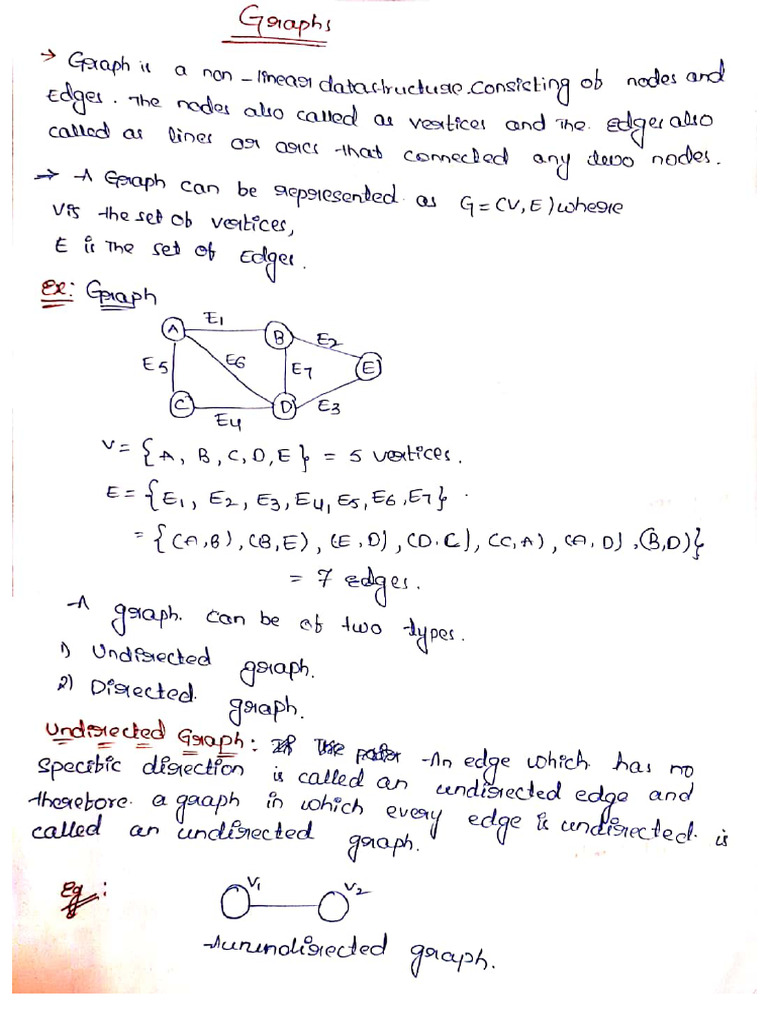 Graphs
→ Graph is a non-linear datastructure. consisting of nodes and
Edges. The nodes also called as vertices and the Edges also
called as lines or arcs that connected any two nodes.
→ A Graph can be represented as G=(V,E) where
V is the set of vertices,
E is The set of Edges.
Ex: Graph
E1
A
B
E2
E5
E6
E7
E
C
D
E3
E4
V = {A, B, C, D, E} = 5 vertices.
E = {E1, E2, E3, E4, E5, E6, E7}.
= {(A,B), (B,E), (E,D), (D,C), (C,A), (A,D), (B,D)}
= 7 edges.
A graph. can be of two types.
1) Undirected graph.
2) Directed. graph.
Undirected Graph: An edge which has no
specific direction is called an undirected edge and
therefore a graph in which every edge is undirected. is
called an undirected graph.
Eg:
V1
V2
undirected graph.